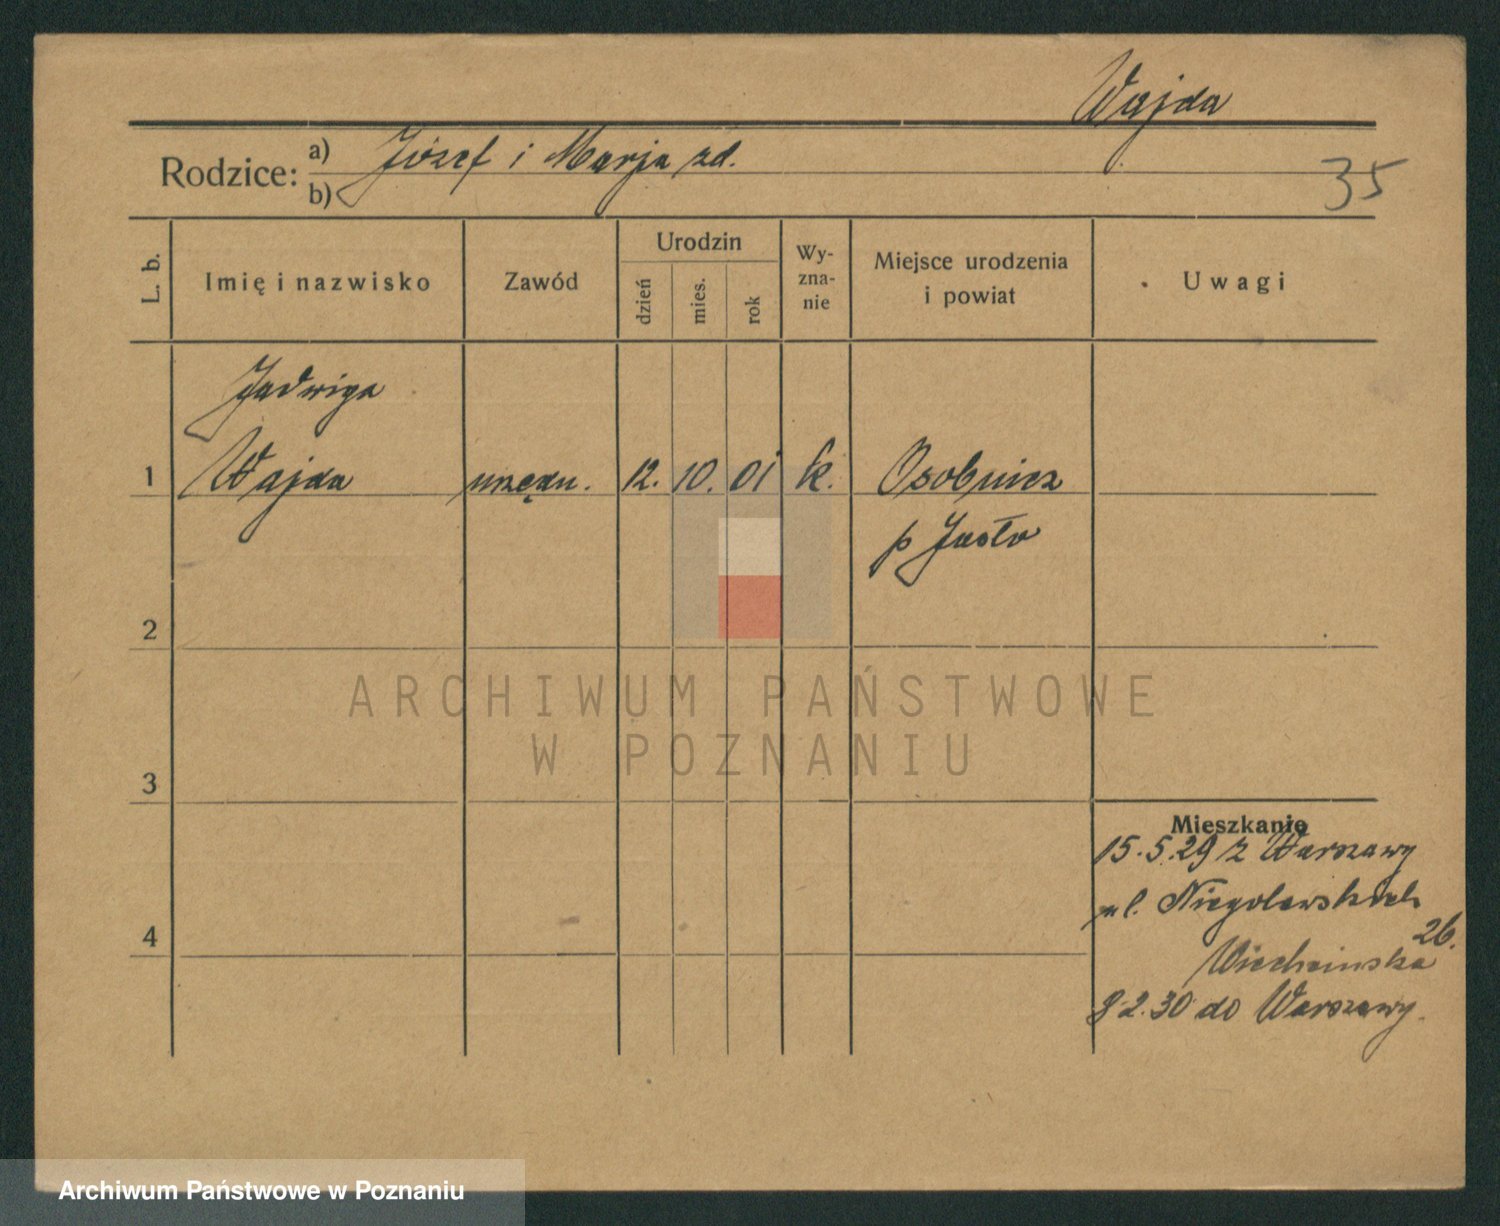 Wajda
Rodzice: a) Józef i Marja zd.
b)
35
L. b.
Imię i nazwisko
Zawód
Urodzin
dzień
mies.
rok
Wy-
zna-
nie
Miejsce urodzenia
i powiat
Uwagi
Jadwiga
1 Wajda urzędn. 12. 10. 01 k. Osobnica
p Jasło
2
ARCHIWUM PAŃSTWOWE
W POZNANIU
3
Mieszkanie
15.5.29 z Warszawy
ul. Niegolewskich
26.
4
8.2.30 do Warszawy.
Archiwum Państwowe w Poznaniu